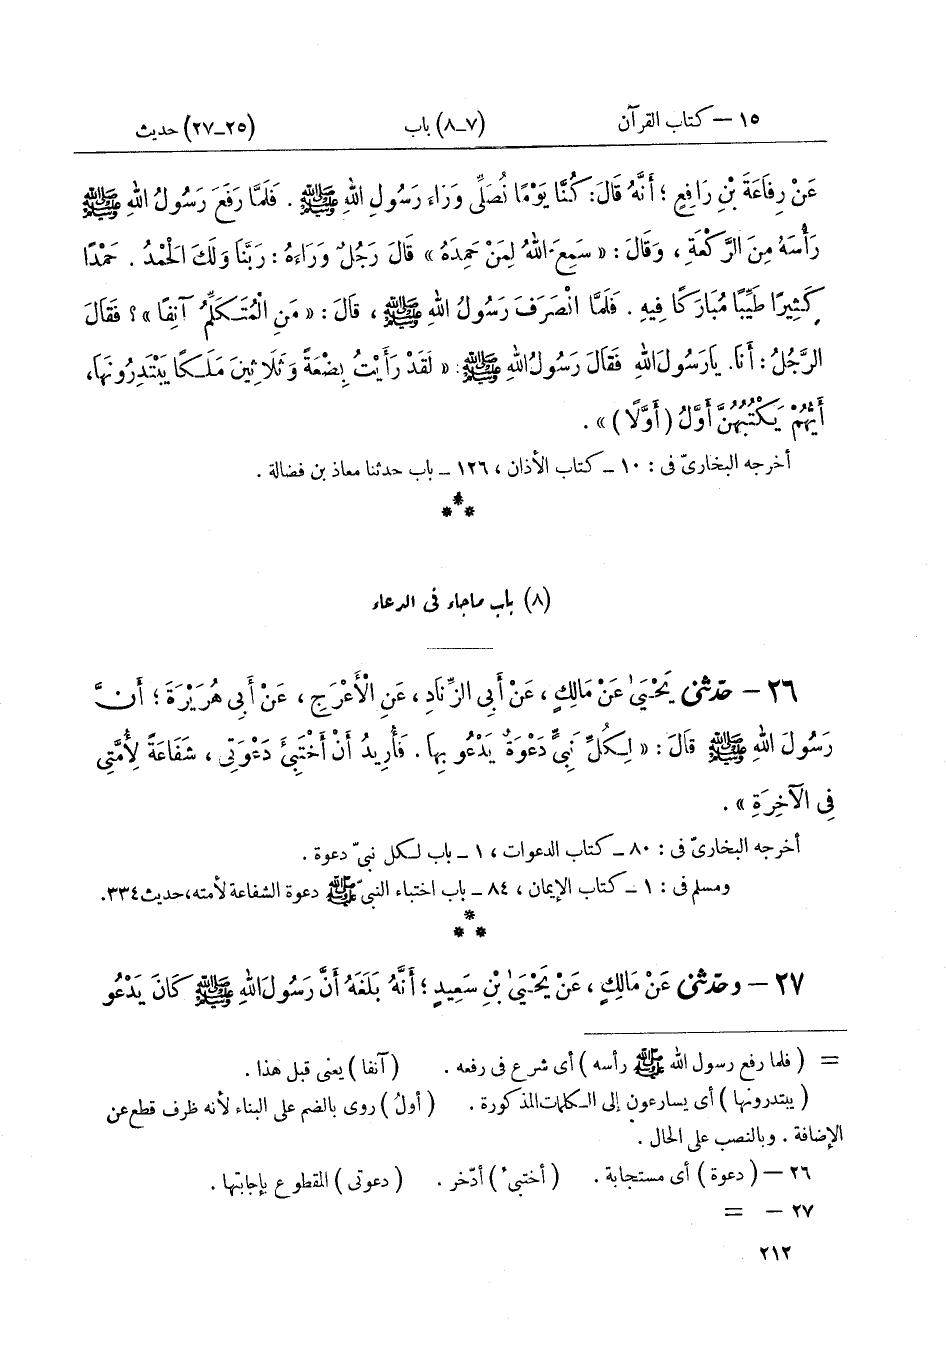 ١٥ – كتاب القرآن (٧-٨) باب (٢٥-٢٧) حديث
عَنْ رِفَاعَةَ بْنِ رَافِعٍ ؛ أَنَّهُ قَالَ: كُنَّا يَوْمًا نُصَلِّى وَرَاءَ رَسُولِ اللهِ ﷺ . فَلَمَّا رَفَعَ رَسُولُ اللهِ ﷺ
رَأْسَهُ مِنَ الرَّكْعَةِ ، وَقَالَ : « سَمِعَ اللهُ لِمَنْ حَمِدَهُ » قَالَ رَجُلٌ وَرَاءَهُ : رَبَّنَا وَلَكَ الْحَمْدُ . حَمْدًا
كَثِيرًا طَيِّبًا مُبَارَكًا فِيهِ . فَلَمَّا انْصَرَفَ رَسُولُ اللهِ ﷺ ، قَالَ : « مَنِ الْمُتَكَلِّمُ آنِفًا » ؟ فَقَالَ
الرَّجُلُ : أَنَا. يَارَسُولَ اللهِ فَقَالَ رَسُولُ اللهِ ﷺ : « لَقَدْ رَأَيْتُ بِضْعَةً وَثَلَاثِينَ مَلَكًا يَبْتَدِرُونَهَا،
أَيُّهُمْ يَكْتُبُهُنَّ أَوَّلُ ( أَوَّلًا ) » .
أخرجه البخارىّ فى : ١٠ – كتاب الأذان ، ١٢٦ – باب حدثنا معاذ بن فضالة .
***
(٨) باب ماجاء فى الدعاء
٢٦ – حدّثنى يَحْيَىٰ عَنْ مَالِكٍ ، عَنْ أَبِى الزِّنَادِ ، عَنِ الْأَعْرَجِ ، عَنْ أَبِى هُرَيْرَةَ ؛ أَنَّ
رَسُولَ اللهِ ﷺ قَالَ : « لِكُلِّ نَبِىٍّ دَعْوَةٌ يَدْعُو بِهَا . فَأُرِيدُ أَنْ أَخْتَبِئَ دَعْوَتِى ، شَفَاعَةً لِأُمَّتِى
فِى الْآخِرَةِ » .
أخرجه البخارىّ فى : ٨٠ – كتاب الدعوات ، ١ – باب لكل نبىّ دعوة .
ومسلم فى : ١ – كتاب الإيمان ، ٨٤ – باب اختباء النبىّ ﷺ دعوة الشفاعة لأمته، حديث ٣٣٤.
***
٢٧ – وحدّثنى عَنْ مَالِكٍ ، عَنْ يَحْيَىٰ بْنِ سَعِيدٍ ؛ أَنَّهُ بَلَغَهُ أَنَّ رَسُولَ اللهِ ﷺ كَانَ يَدْعُو
= ( فلما رفع رسول الله ﷺ رأسه ) أى شرع فى رفعه . ( آنفا ) يعنى قبل هذا .
( يبتدرونها ) أى يسارعون إلى الكلمات المذكورة . ( أولُ ) روى بالضم على البناء لأنه ظرف قطع عن
الإضافة . وبالنصب على الحال .
٢٦ – ( دعوة ) أى مستجابة . ( أختبئ ) أدّخر . ( دعوتى ) المقطوع بإجابتها .
٢٧ – =
٢١٢